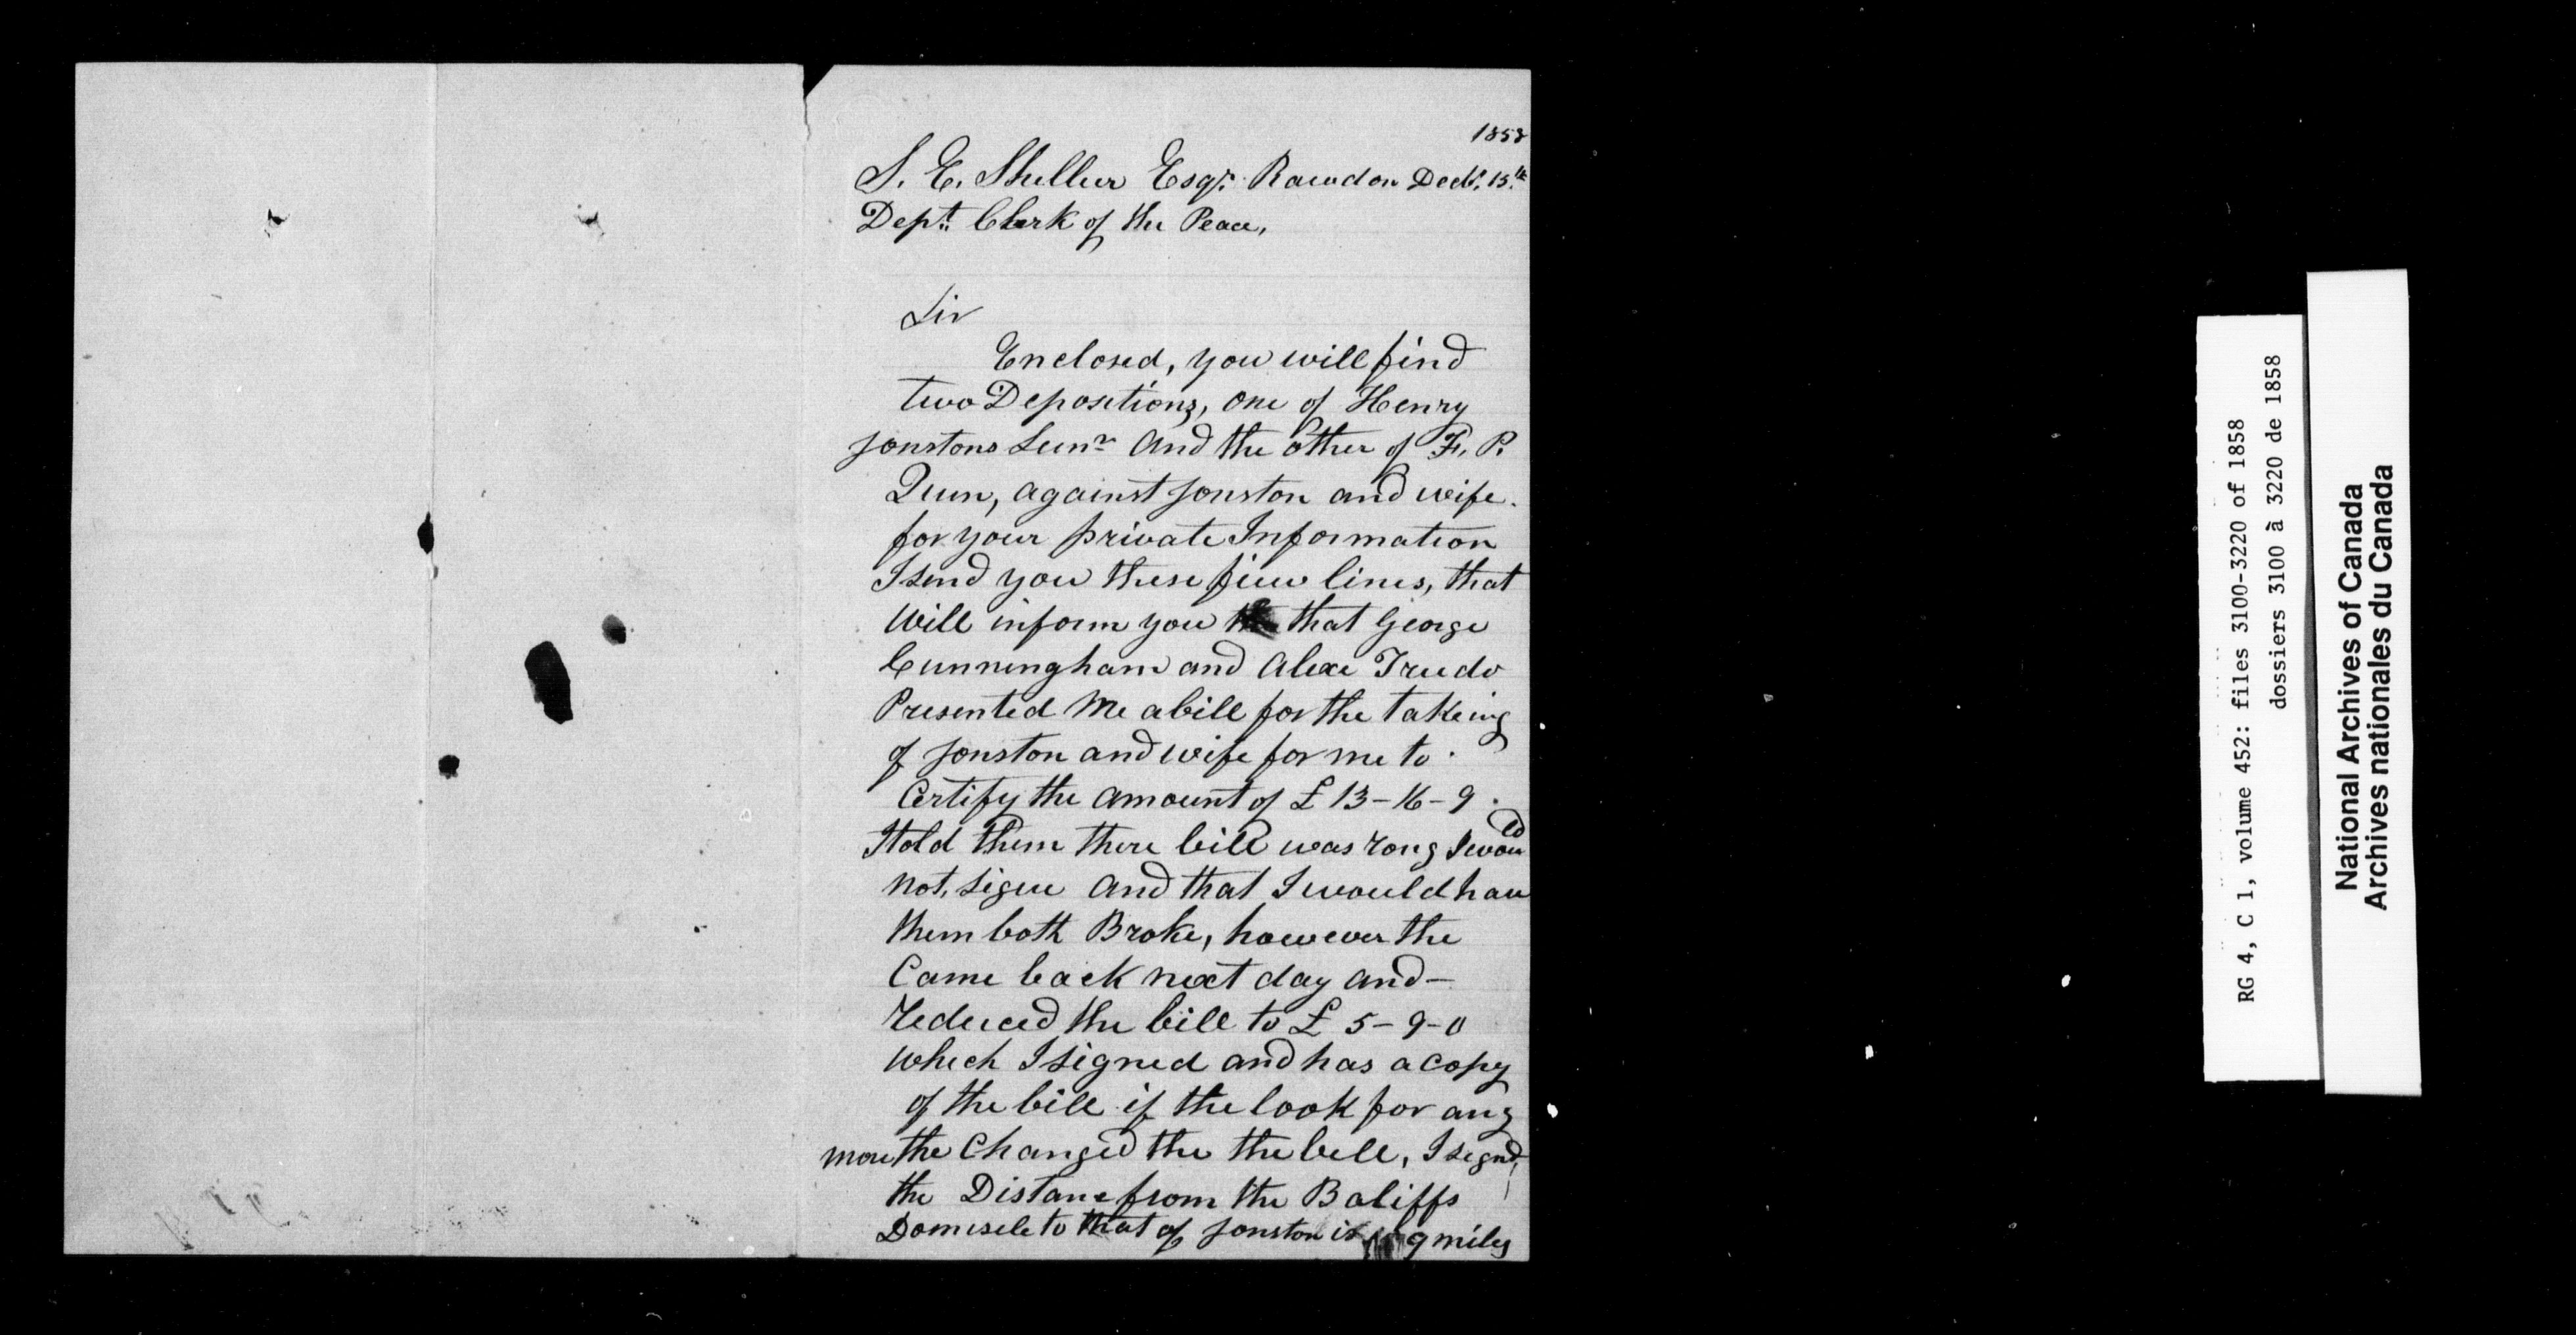 1858
S. E. Sheller Esqr. Rawdon Decbr. 15.th
Dept. Clerk of the Peace,
Sir
Enclosed, you will find
two Depositions, one of Henry
Jonstons Seunr and the other of F. P.
Quin, against Jonston and wife.
for your private Information
I send you these fiew lines, that
will inform you that George
Cunningham and Alexe Trudo
Presented me a bill for the takeing
of Jonston and wife for me to
Certify the amount of £ 13-16-9.
I told them there bill was rong I would
not, signe and that I would hav
them both Broke, however the
Came back next day and -
reduced the bill to £ 5-9-0
which I signed and has a copy
of the bill if the look for any
more the Changed the the bill, I signd,
the Distane from the Baliffs
Domisele to that of Jonston is 9 miles
RG 4, C 1, volume 452: files 3100-3220 of 1858
dossiers 3100 à 3220 de 1858
National Archives of Canada
Archives nationales du Canada